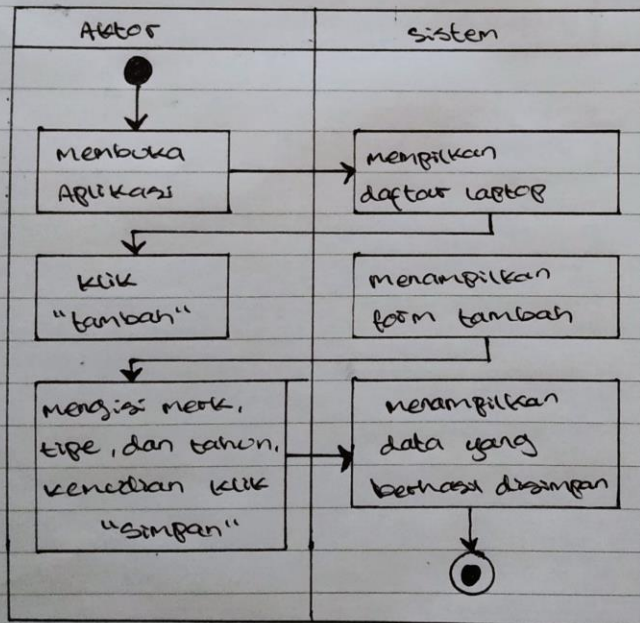 Aktor
Sistem
Membuka
Aplikasi
Mempilkan
daftar laptop
Klik
"tambah"
Menampilkan
form tambah
Mengisi merk,
tipe, dan tahun,
kemudian klik
"Simpan"
Menampilkan
data yang
berhasil disimpan